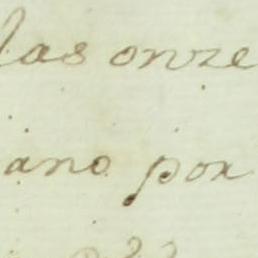 las onze
ano por